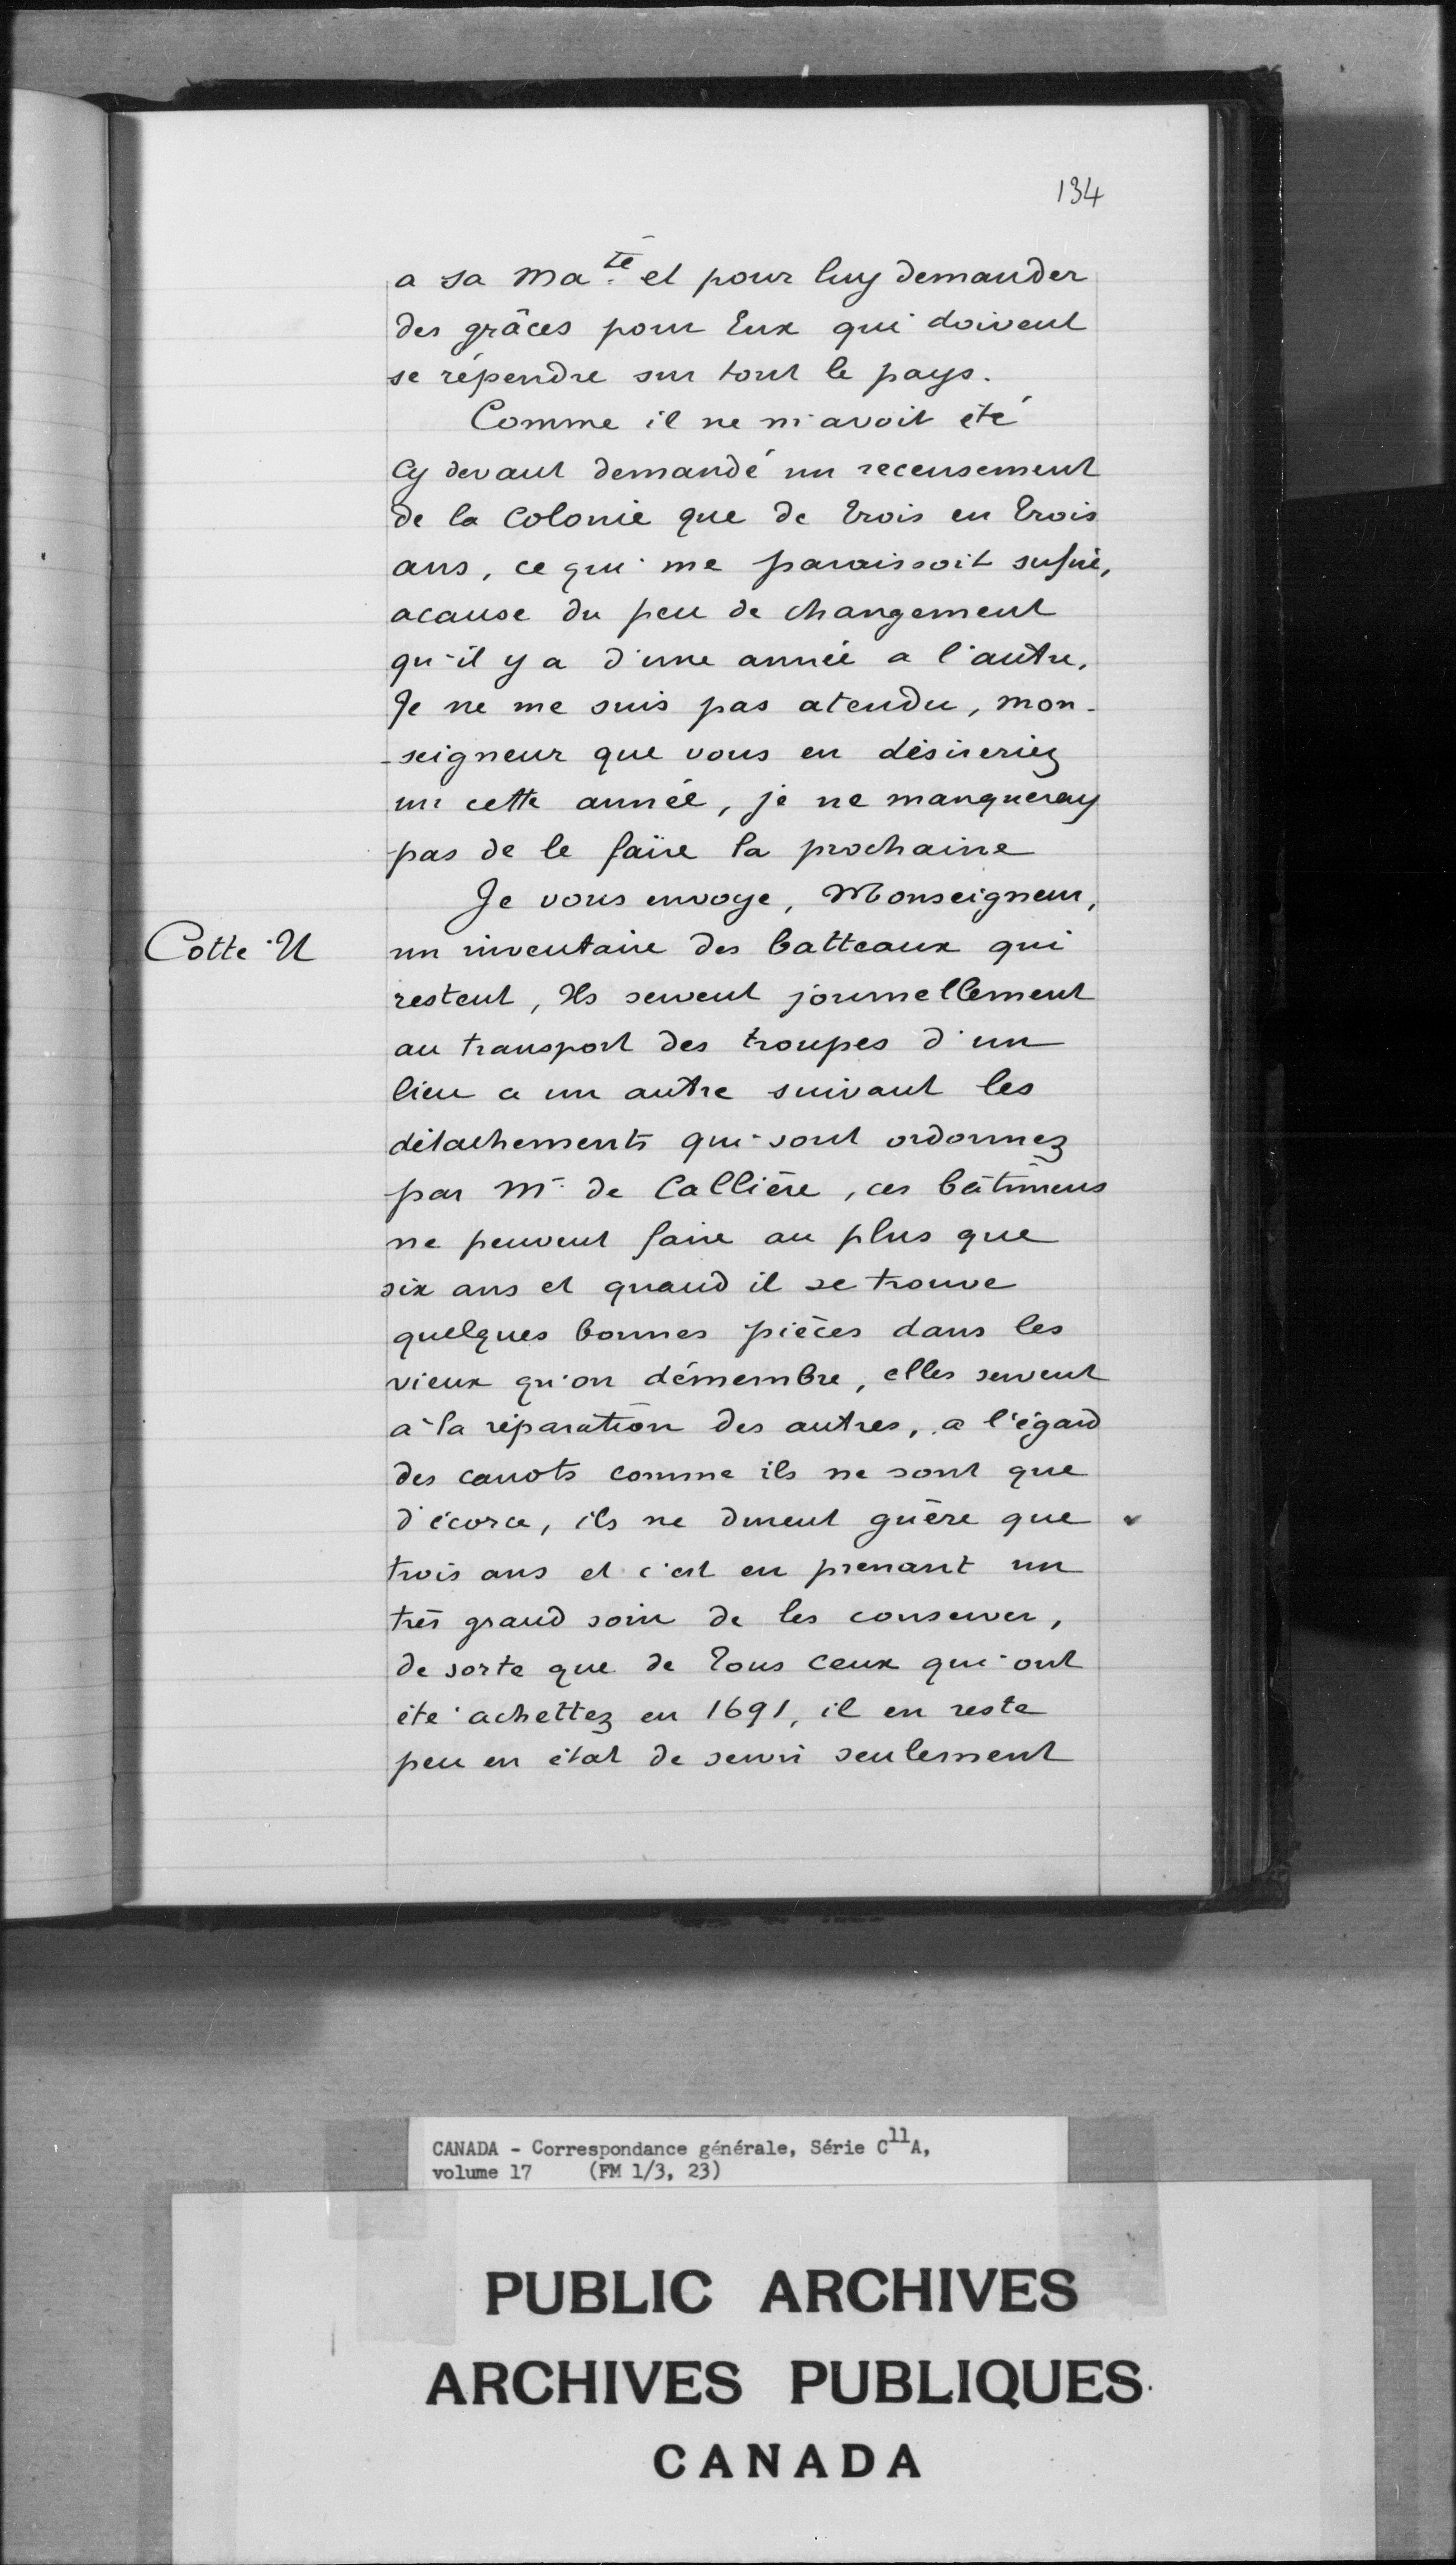 134
a sa Ma.té et pour luy demander
des grâces pour Eux qui doivent
se répendre sur tout le pays.
Comme il ne m'avoit été
Cy devant demandé un recensement
de la Colonie que de trois en trois
ans, ce qui me paraissoit sufire,
acause du peu de changement
qu'il y a d'une année a l'autre.
Je ne me suis pas atendu, mon-
-seigneur que vous en désireriez
un cette année, je ne manqueray
pas de le faire la prochaine
Je vous envoye, Monseigneur,
Cotte U
un inventaire des batteaux qui
restent, Ils servent journellement
au transport des troupes d'un
lieu a un autre suivant les
détachements qui sont ordonnez
par Mr de Callière, ces bâtimens
ne peuvent faire au plus que
six ans et quand il se trouve
quelques bonnes pièces dans les
vieux qu'on démembre, elles servent
à la réparation des autres, a l'égard
des canots comme ils ne sont que
d'écorce, ils ne durent guère que
trois ans et c'est en prenant un
très grand soin de les conserver,
de sorte que de tous ceux qui ont
été achettez en 1691, il en reste
peu en état de servir seulement
CANADA - Correspondance générale, Série C11A,
volume 17 (FM 1/3, 23)
PUBLIC ARCHIVES
ARCHIVES PUBLIQUES
CANADA